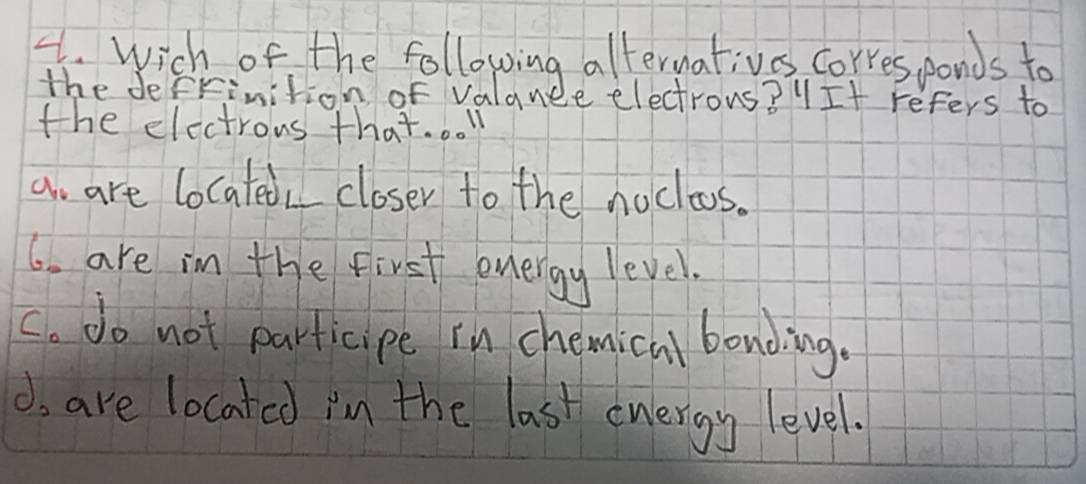 4. Wich of the following alternatives corresponds to
the deffinition of valance electrons? "It refers to
the electrons that..."
a. are located closer to the nucleus.
b. are in the first energy level.
c. do not participe in chemical bonding.
d. are located in the last energy level.